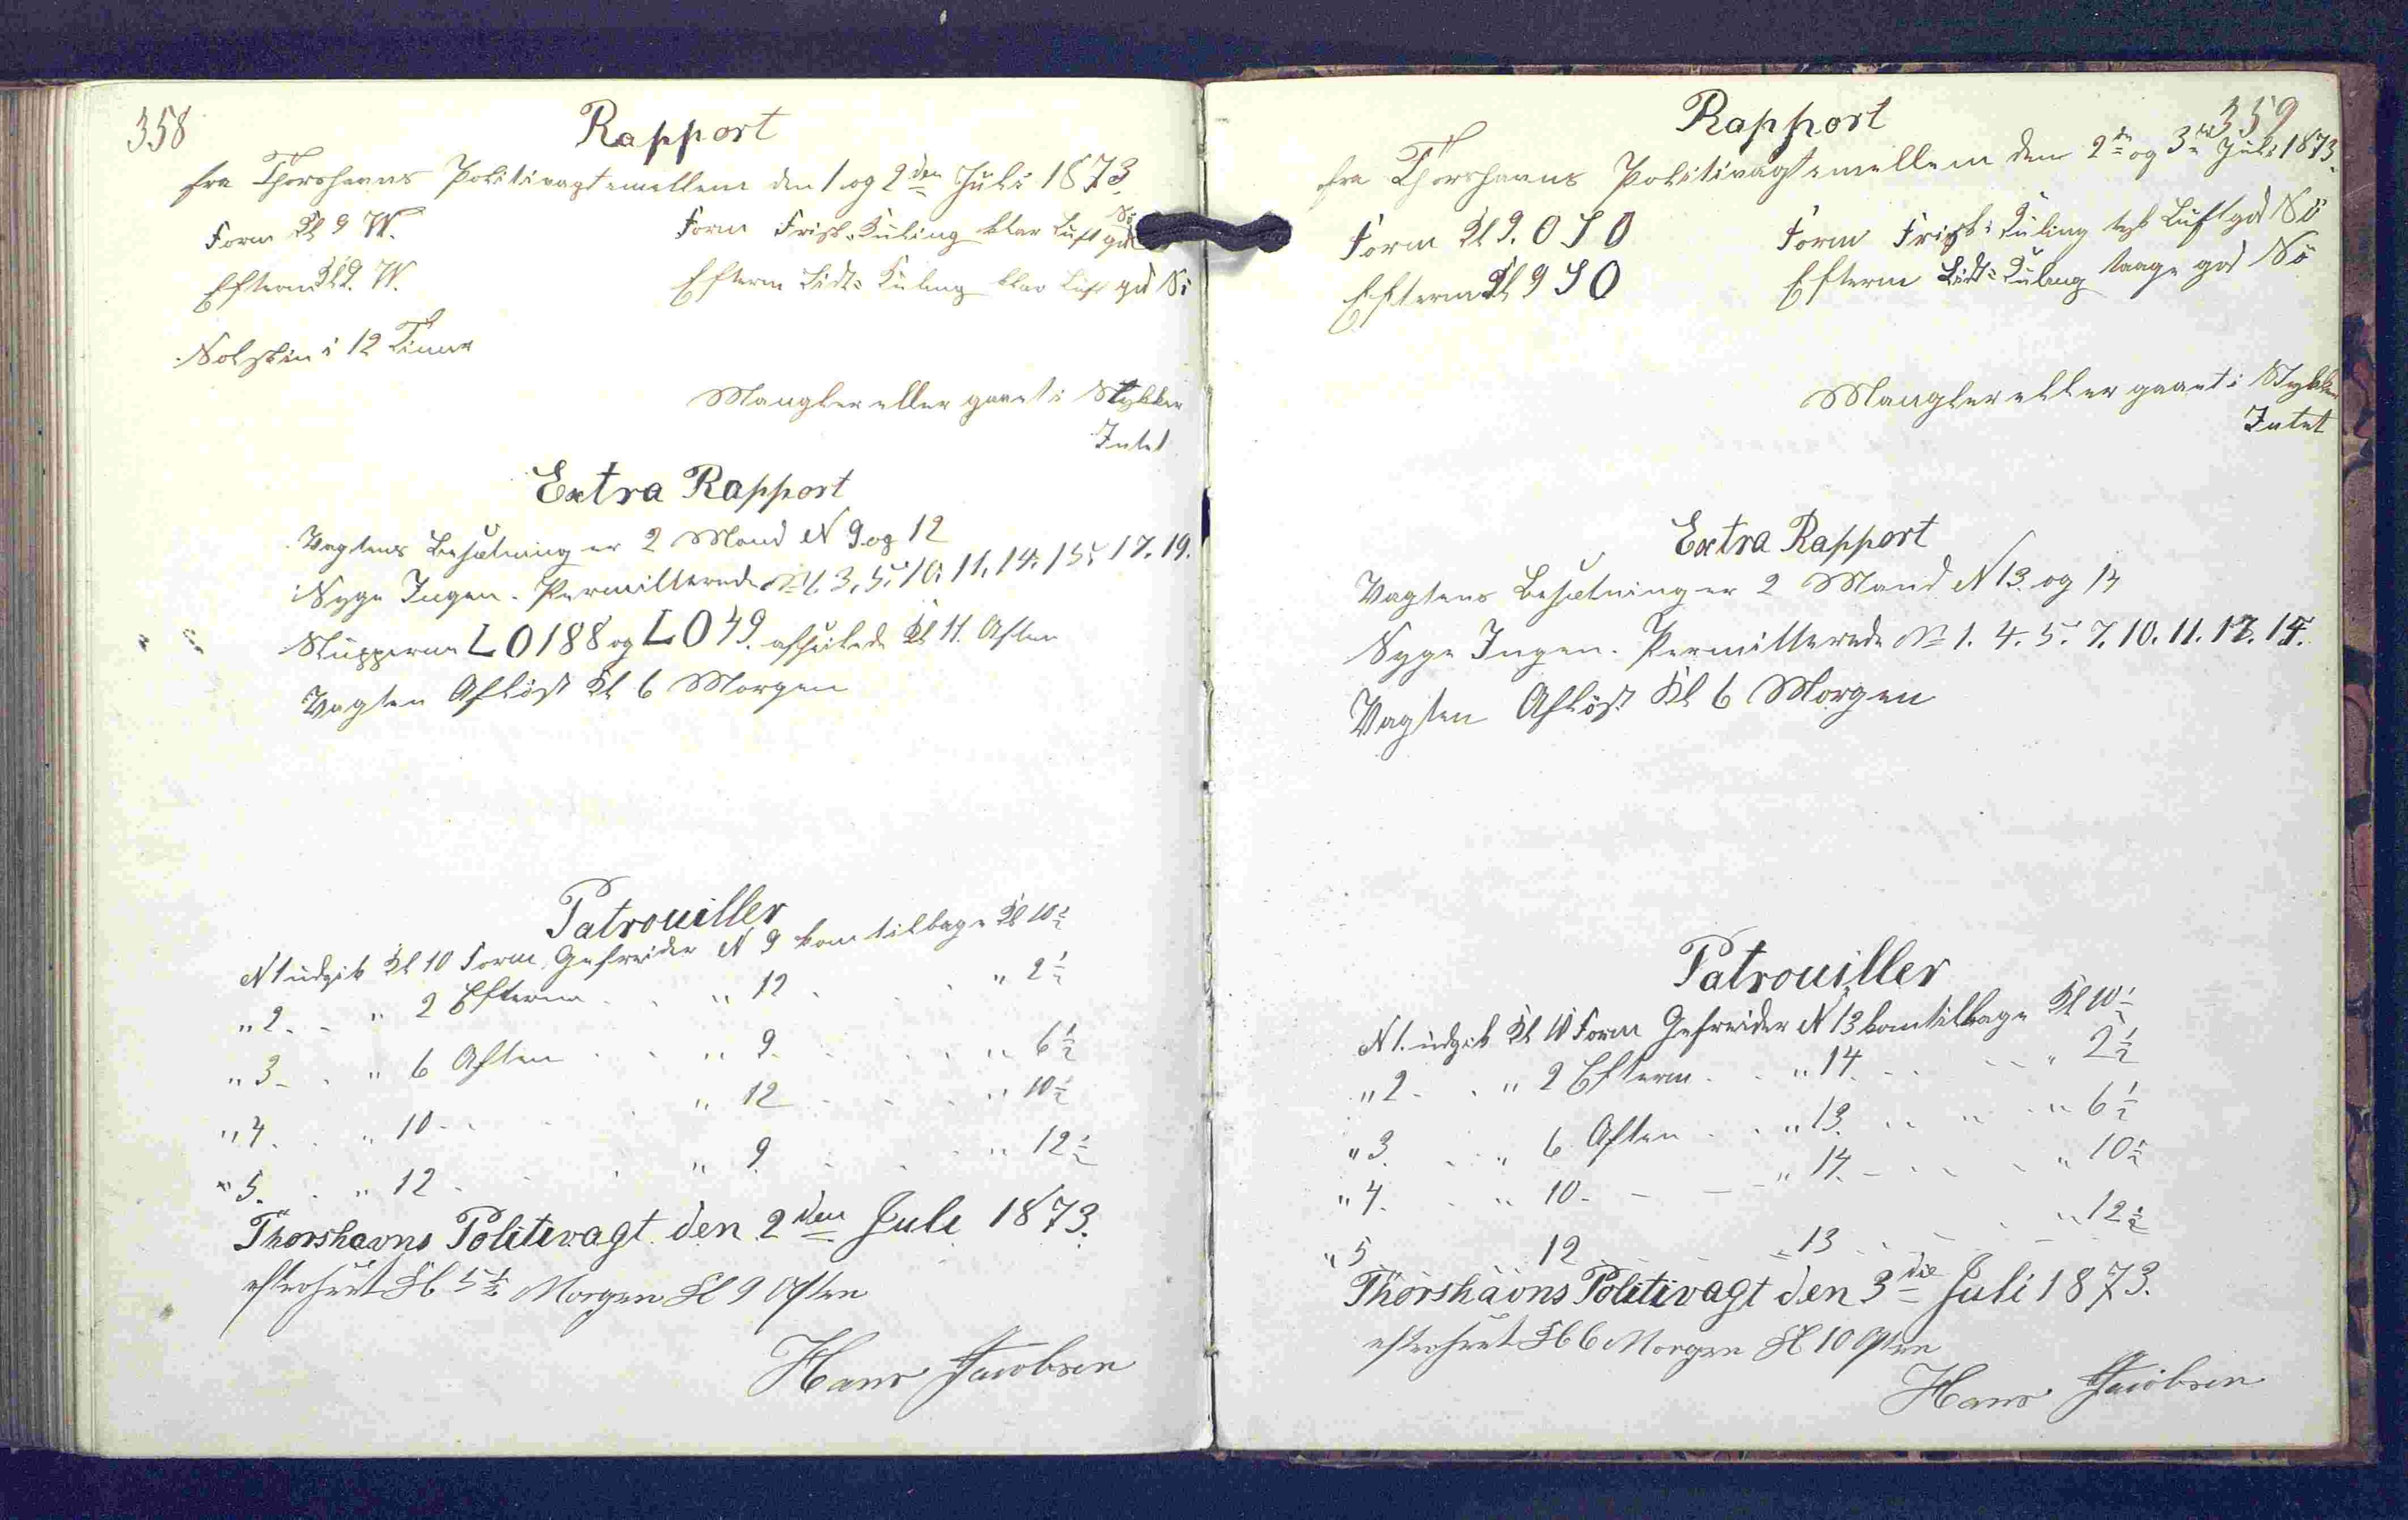 358
Rapport
fra Thorshavns Politivagt emellem den 1 og 2den Juli 1873.
Form Kl 9 W.
Form Frisk Kuling klar Luft god Sö
Efterm Kl 9. W.
Efterm Lidt Kuling klar Luft god Sö
Solskin i 12 Timer
Mangler eller gaaet i Stykker
Intet
Extra Rapport
Vagtens Besætning er 2 Mand N 9 og 12
Syge Ingen. Permitterede No 1. 3. 5. 10. 11. 14. 15. 17. 19.
Slupperne LO188 og LO49. afseilede Kl 11. Aften
Vagten Aflöst Kl 6 Morgen
Patrouiller
N 1 udgik Kl 10 Form Gefreider N 9 kom tilbage Kl 10½
" 2. - " 2 Efterm . . " 12 . . . " 2½
" 3 - . " 6 Aften . . " 9. . . . " 6½
" 4. . " 10 - . . " 12 . . . " 10½
" 5. . " 12 - . . " 9. . . . " 12½
Thorshavns Politivagt den 2den Juli 1873.
efterseet Kl 5½ Morgen Kl 9 Aften
Hans Jacobsen
359
Rapport
fra Thorshavns Politivagt emellem den 2de og 3die Juli 1873.
Form Kl 9. O S O
Form Frisk: Kuling tyk Luft god Sö
Efterm Kl 9 S O
Efterm Lidt: Kuling taage god Sö
Mangler eller gaaet i Stykker
Intet
Extra Rapport
Vagtens Besætning er 2 Mand N 13. og 14
Syge Ingen. Permitterede No 1. 4. 5. 7. 10. 11. 12. 15.
Vagten Aflöst Kl 6 Morgen
Patrouiller
N 1. udgik Kl 10 Form Gefreider N 13 kom tilbage Kl 10½
" 2 - . " 2 Efterm . . " 14. - . - - " 2½
" 3. . " 6. Aften . . " 13. . . " . " 6½
" 4. . " 10 - - - " 14. - . . - " 10½
" 5 12 . - " 13 . . - . " 12½
Thorshavns Politivagt den 3die Juli 1873.
efterseet Kl 6 Morgen Kl 10 Aften
Hans Jacobsen